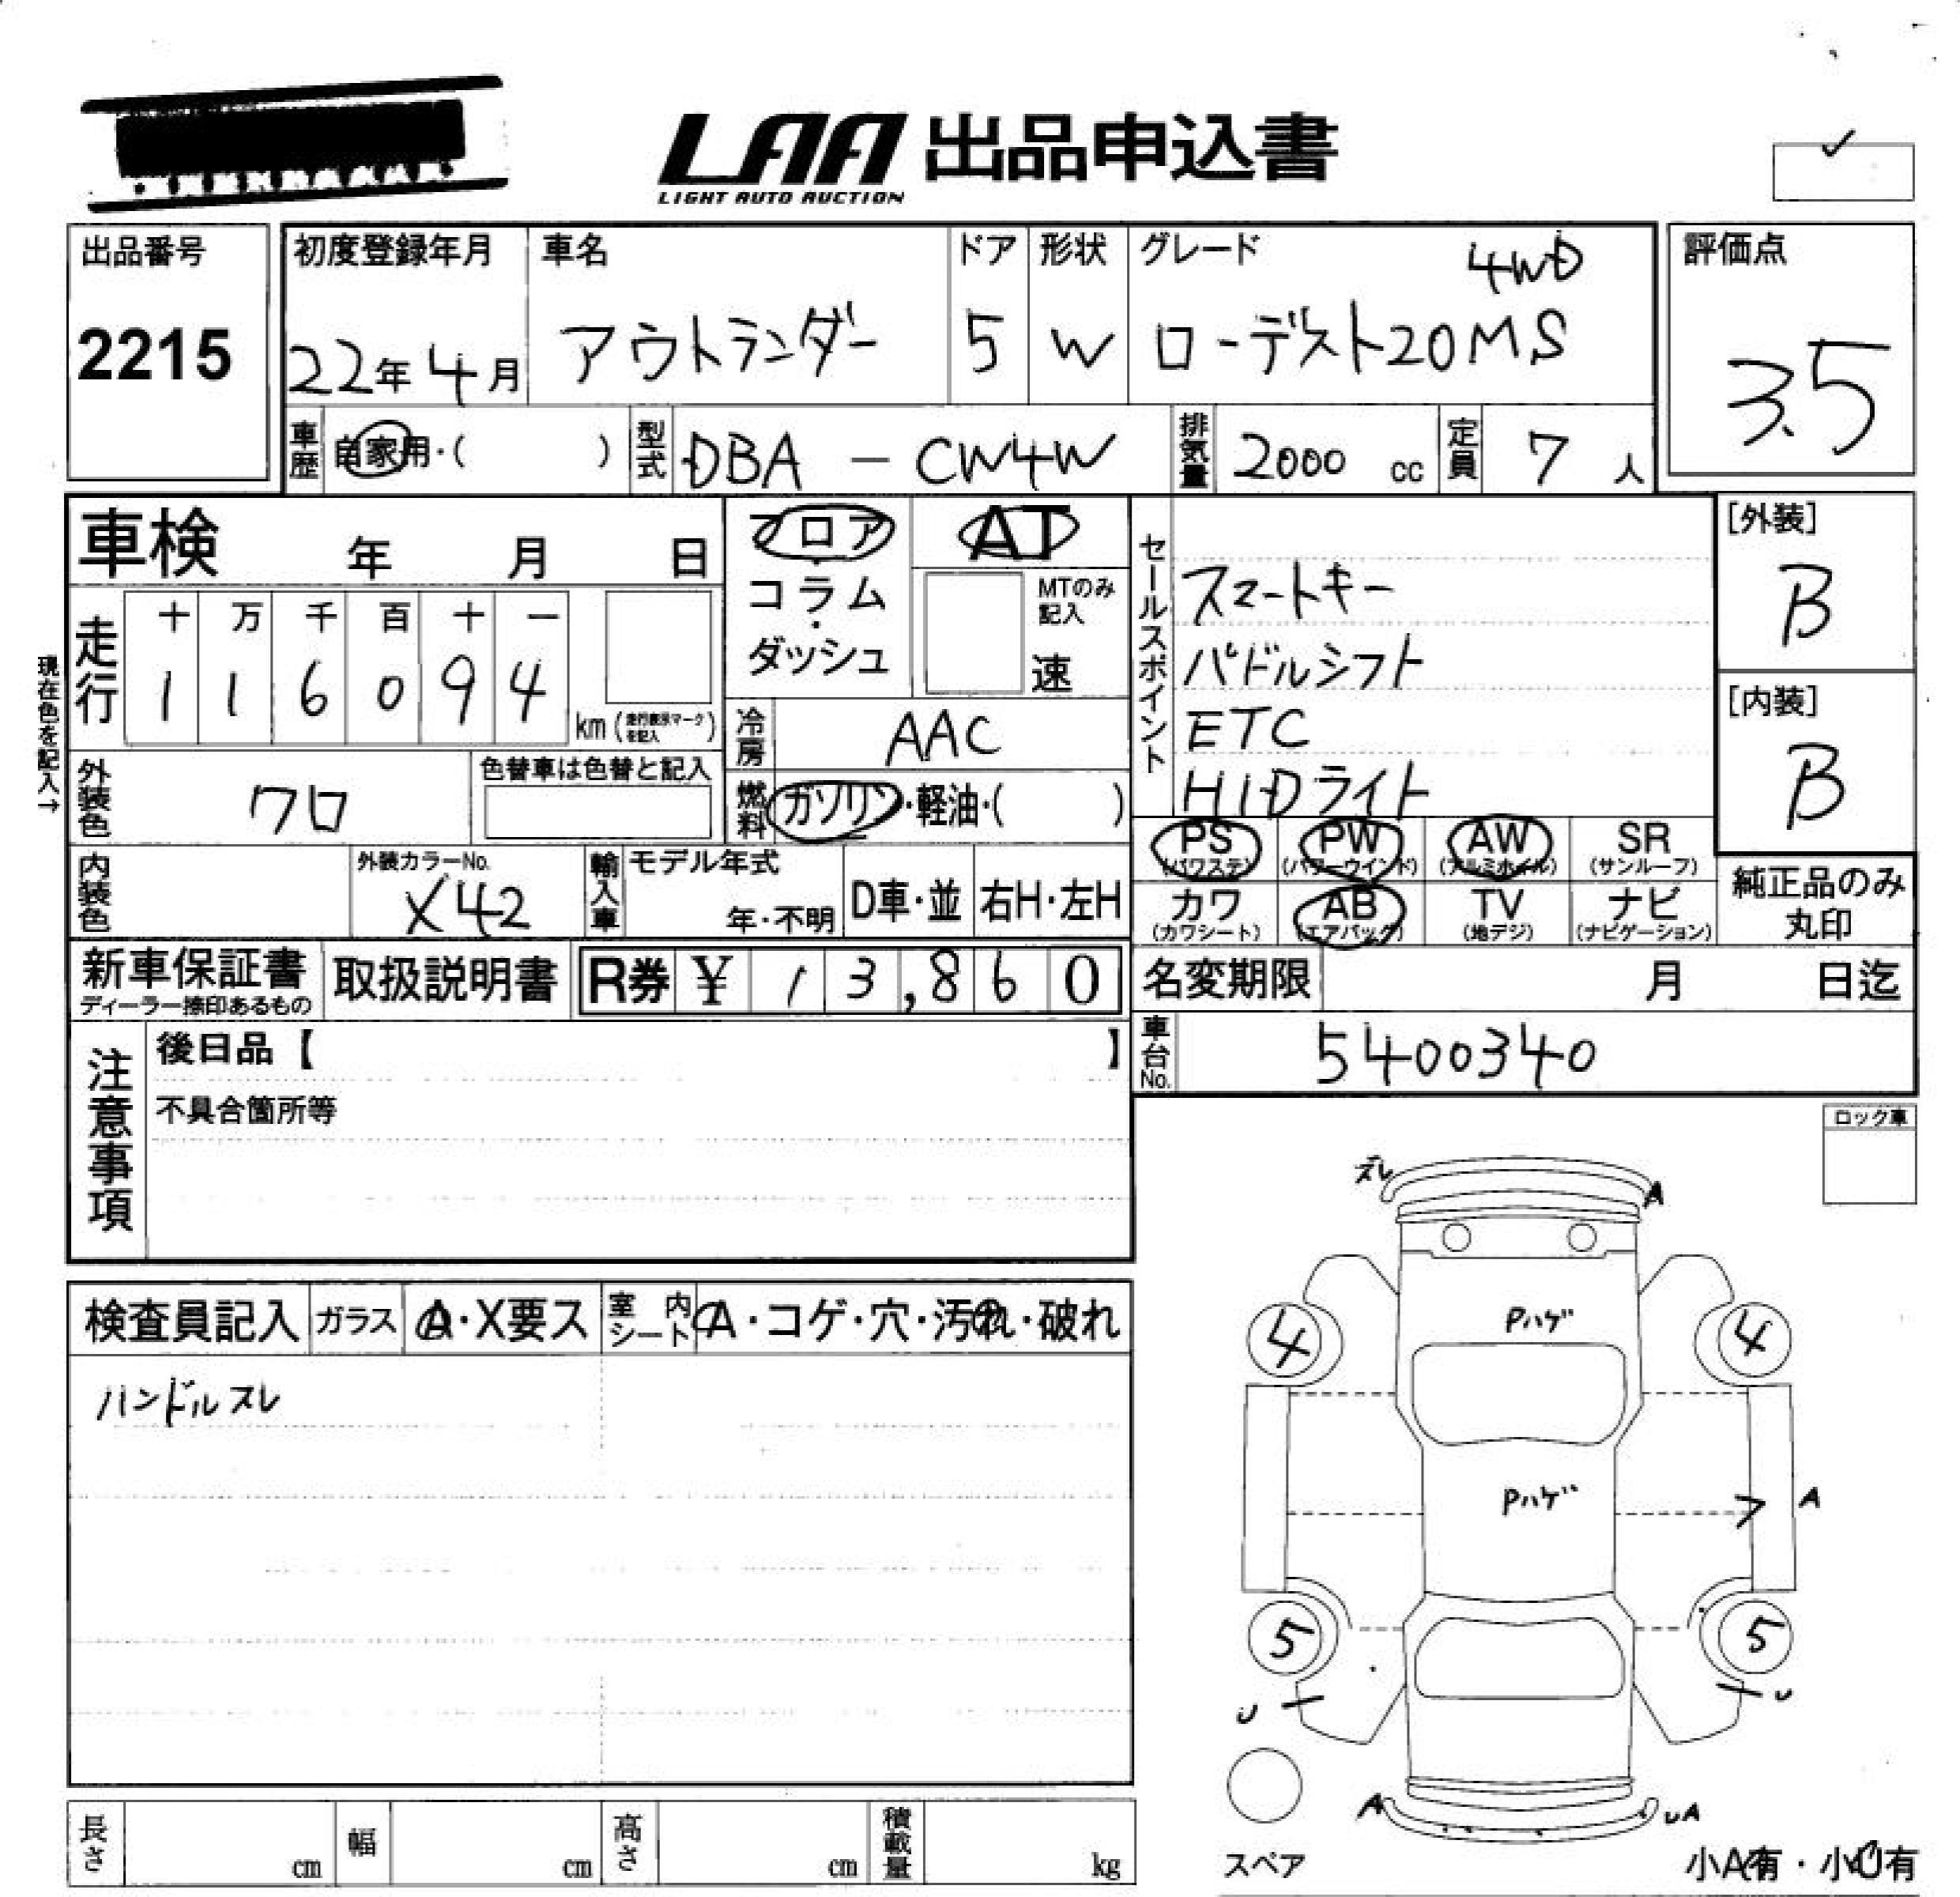 LAA 出品申込書
LIGHT AUTO AUCTION
出品番号
2215
初度登録年月
22年 4月
車名
アウトランダー
ドア
5
形状
W
グレード
4WD
ローデスト20MS
評価点
3.5
車歴
自家用・( )
型式
DBA - CW4W
排気量
2000 cc
定員
7 人
車検 年 月 日
フロア
・
コラム
・
ダッシュ
AT
MTのみ
記入
速
セールスポイント
スマートキー
パドルシフト
ETC
HIDライト
[外装]
B
[内装]
B
現在色を記入→
走行
十 万 千 百 十 一
1 1 6 0 9 4
km (走行表示マークを記入)
冷房
AAC
外装色
クロ
色替車は色替と記入
燃料
ガソリン・軽油・( )
PS
(パワステ)
PW
(パワーウインド)
AW
(アルミホイル)
SR
(サンルーフ)
カワ
(カワシート)
AB
(エアバック)
TV
(地デジ)
ナビ
(ナビゲーション)
純正品のみ
丸印
内装色
外装カラーNo.
X42
輸入車
モデル年式
年・不明
D車・並
右H・左H
新車保証書
ディーラー捺印あるもの
取扱説明書
R券 ¥ 13,860
名変期限 月 日迄
車台No.
5400340
注意事項
後日品【 】
不具合箇所等
ロック車
検査員記入
ガラス
A・X要ス
室内シート
A・コゲ・穴・汚れ・破れ
ハンドルスレ
ズレ
A
Pハゲ
4
4
Pハゲ
A
5
5
U
U
A
UA
スペア
小A有・小U有
長さ cm
幅 cm
高さ cm
積載量 kg